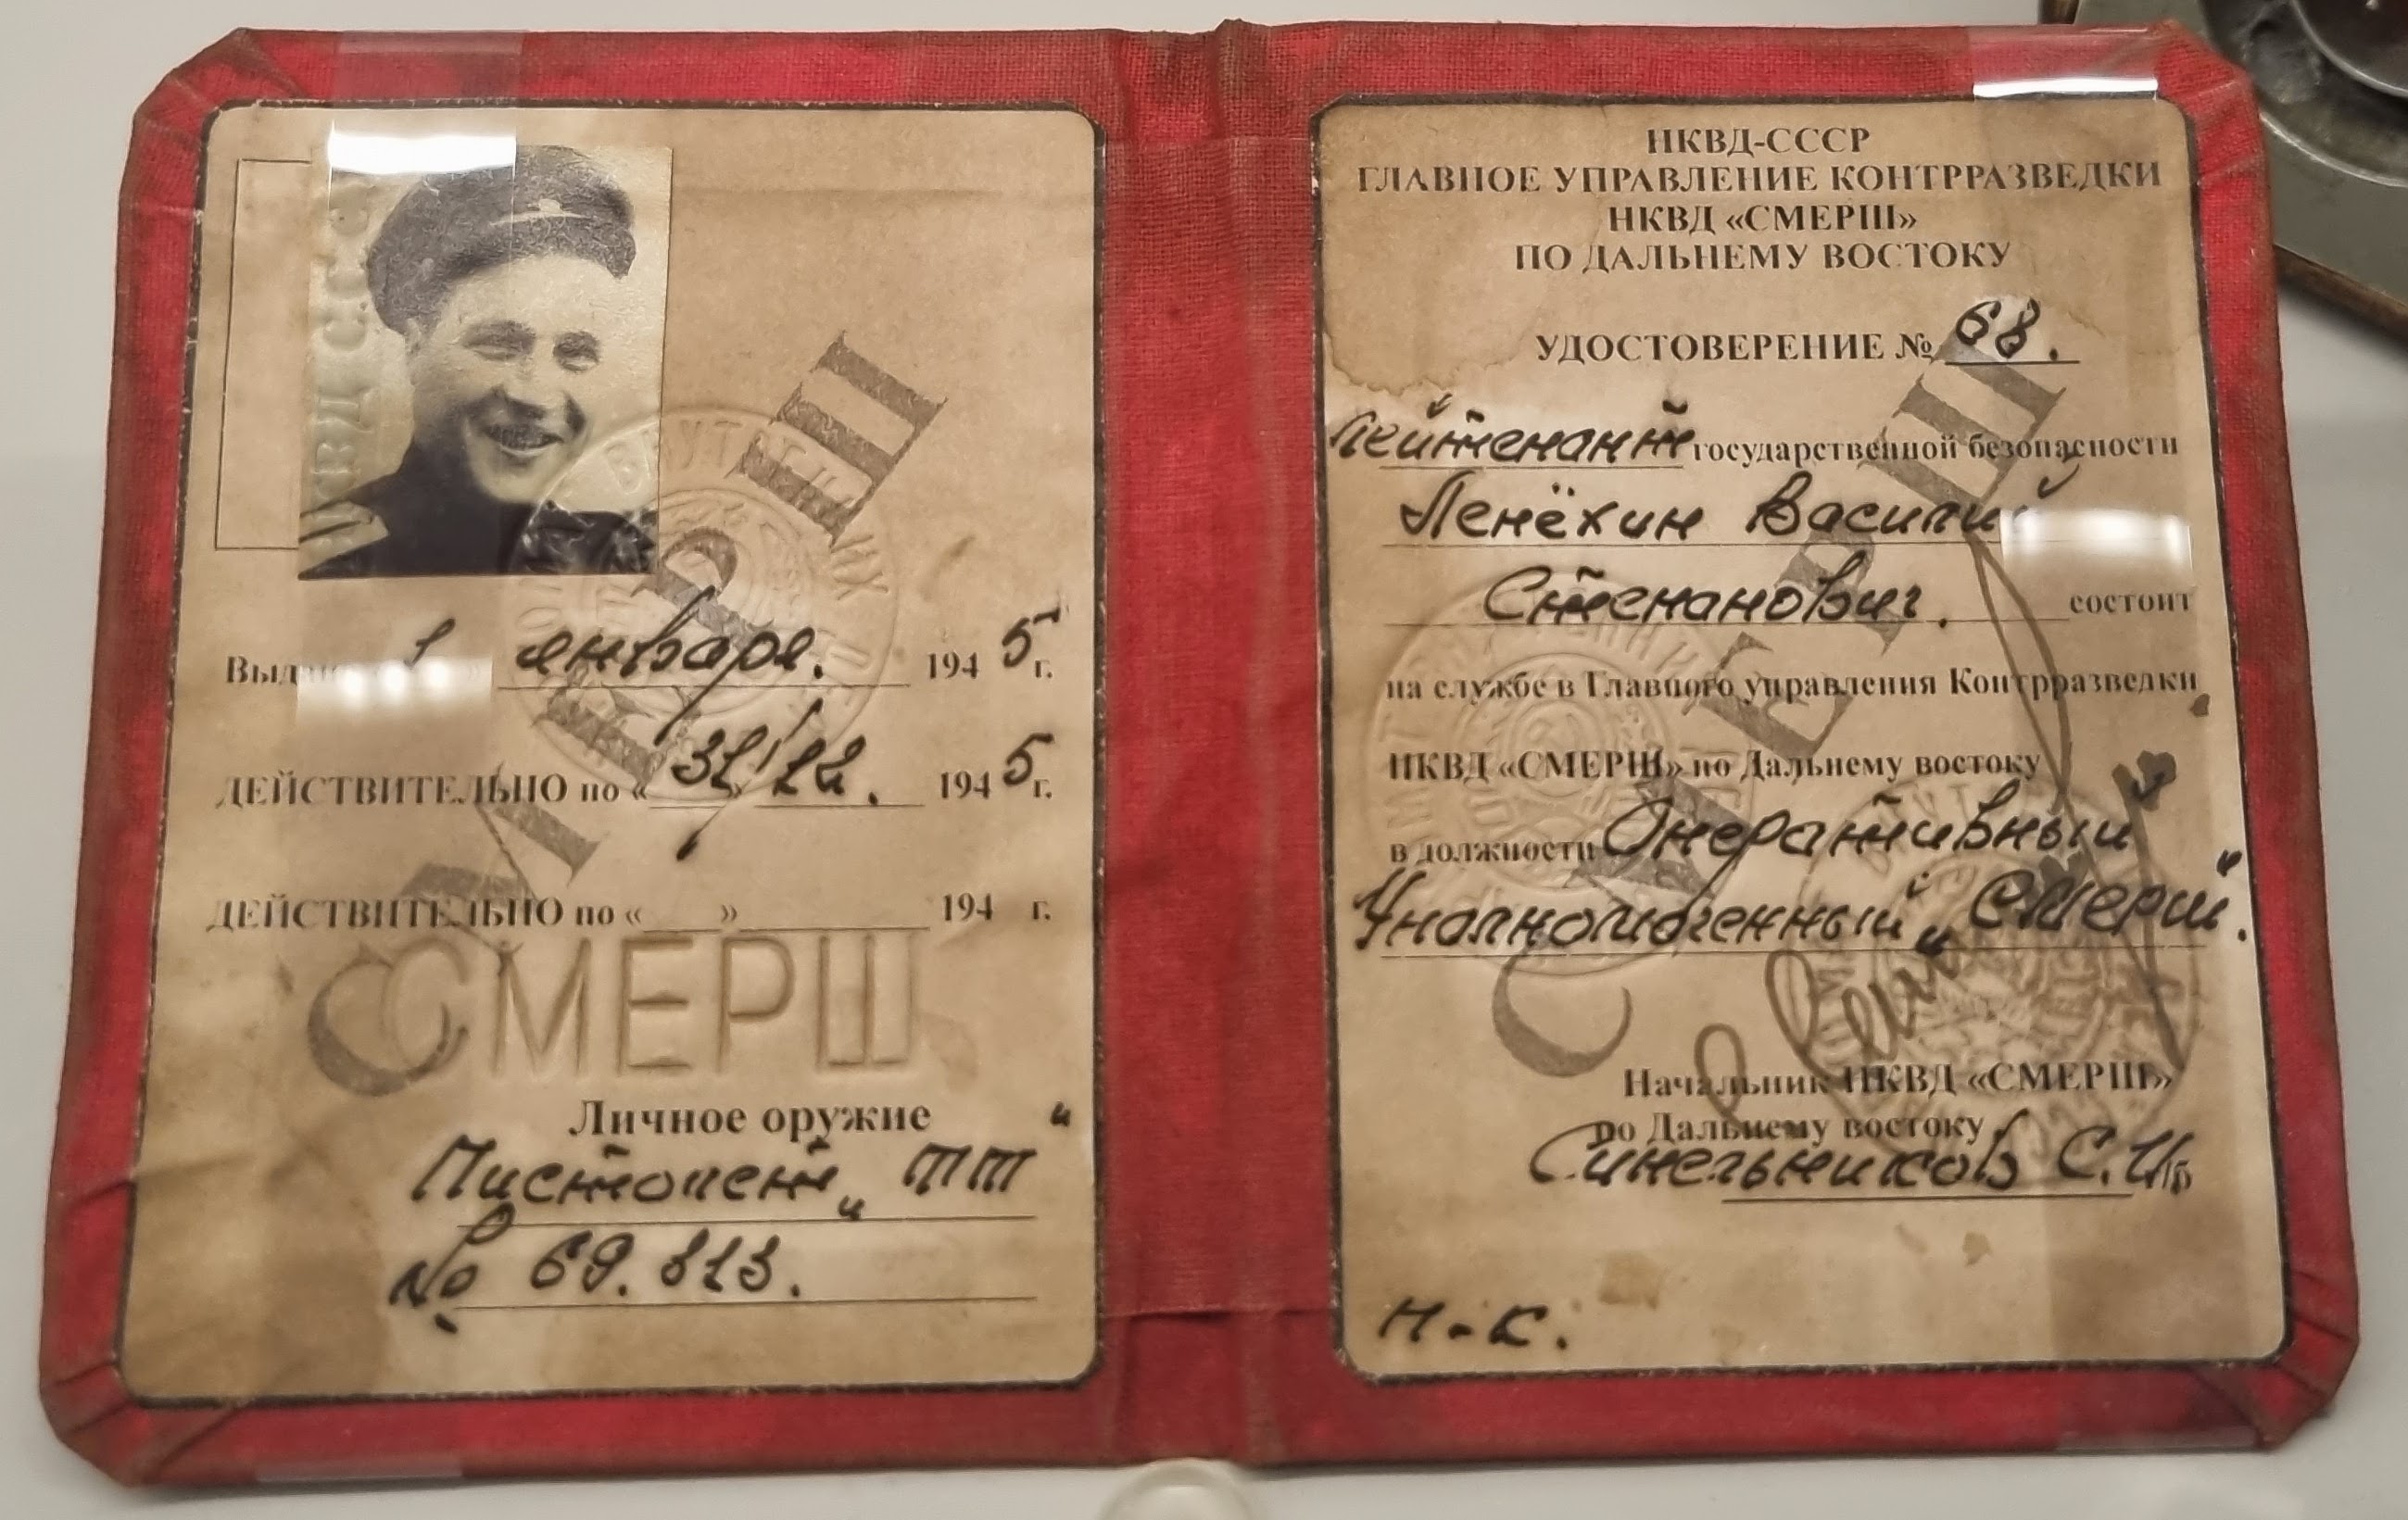 СМЕРШ
Выдано « 1 » января. 1945 г.
ДЕЙСТВИТЕЛЬНО по « 31/12. 1945 г.
ДЕЙСТВИТЕЛЬНО по «___» 194 г.
СМЕРШ
Личное оружие
Пистолет „ТТ“
№ 69.813.
НКВД-СССР
ГЛАВНОЕ УПРАВЛЕНИЕ КОНТРРАЗВЕДКИ
НКВД «СМЕРШ»
ПО ДАЛЬНЕМУ ВОСТОКУ
УДОСТОВЕРЕНИЕ № 68.
Лейтенант государственной безопасности
Пенёхин Василий
Степанович. состоит
на службе в Главного управления Контрразведки
НКВД «СМЕРШ» по Дальнему востоку
в должности Оперативный
Уполномоченный „Смерш“.
СМЕРШ
Начальник НКВД «СМЕРШ»
по Дальнему востоку
Синельников С.И.
Н-К.